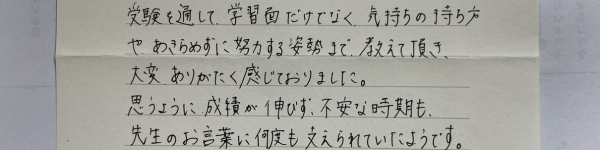 受験を通して、学習面だけでなく、気持ちの持ち方
や、あきらめずに努力する姿勢まで、教えて頂き、
大変、ありがたく感じておりました。
思うように成績が伸びず、不安な時期も、
先生のお言葉に何度も支えられていたようです。